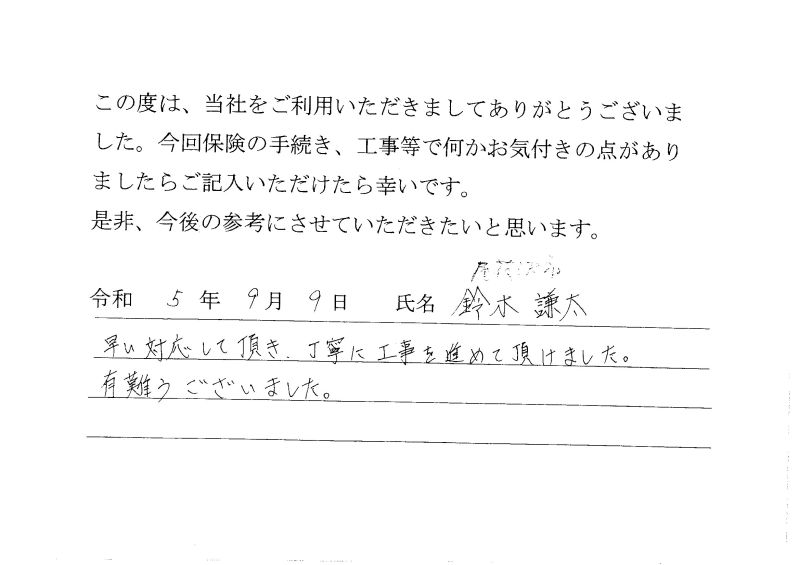 この度は、当社をご利用いただきましてありがとうございま
した。今回保険の手続き、工事等で何かお気付きの点があり
ましたらご記入いただけたら幸いです。
是非、今後の参考にさせていただきたいと思います。
令和 5 年 9 月 9 日 氏名 鈴木 謙太
早い対応して頂き、丁寧に工事を進めて頂けました。
有難うございました。